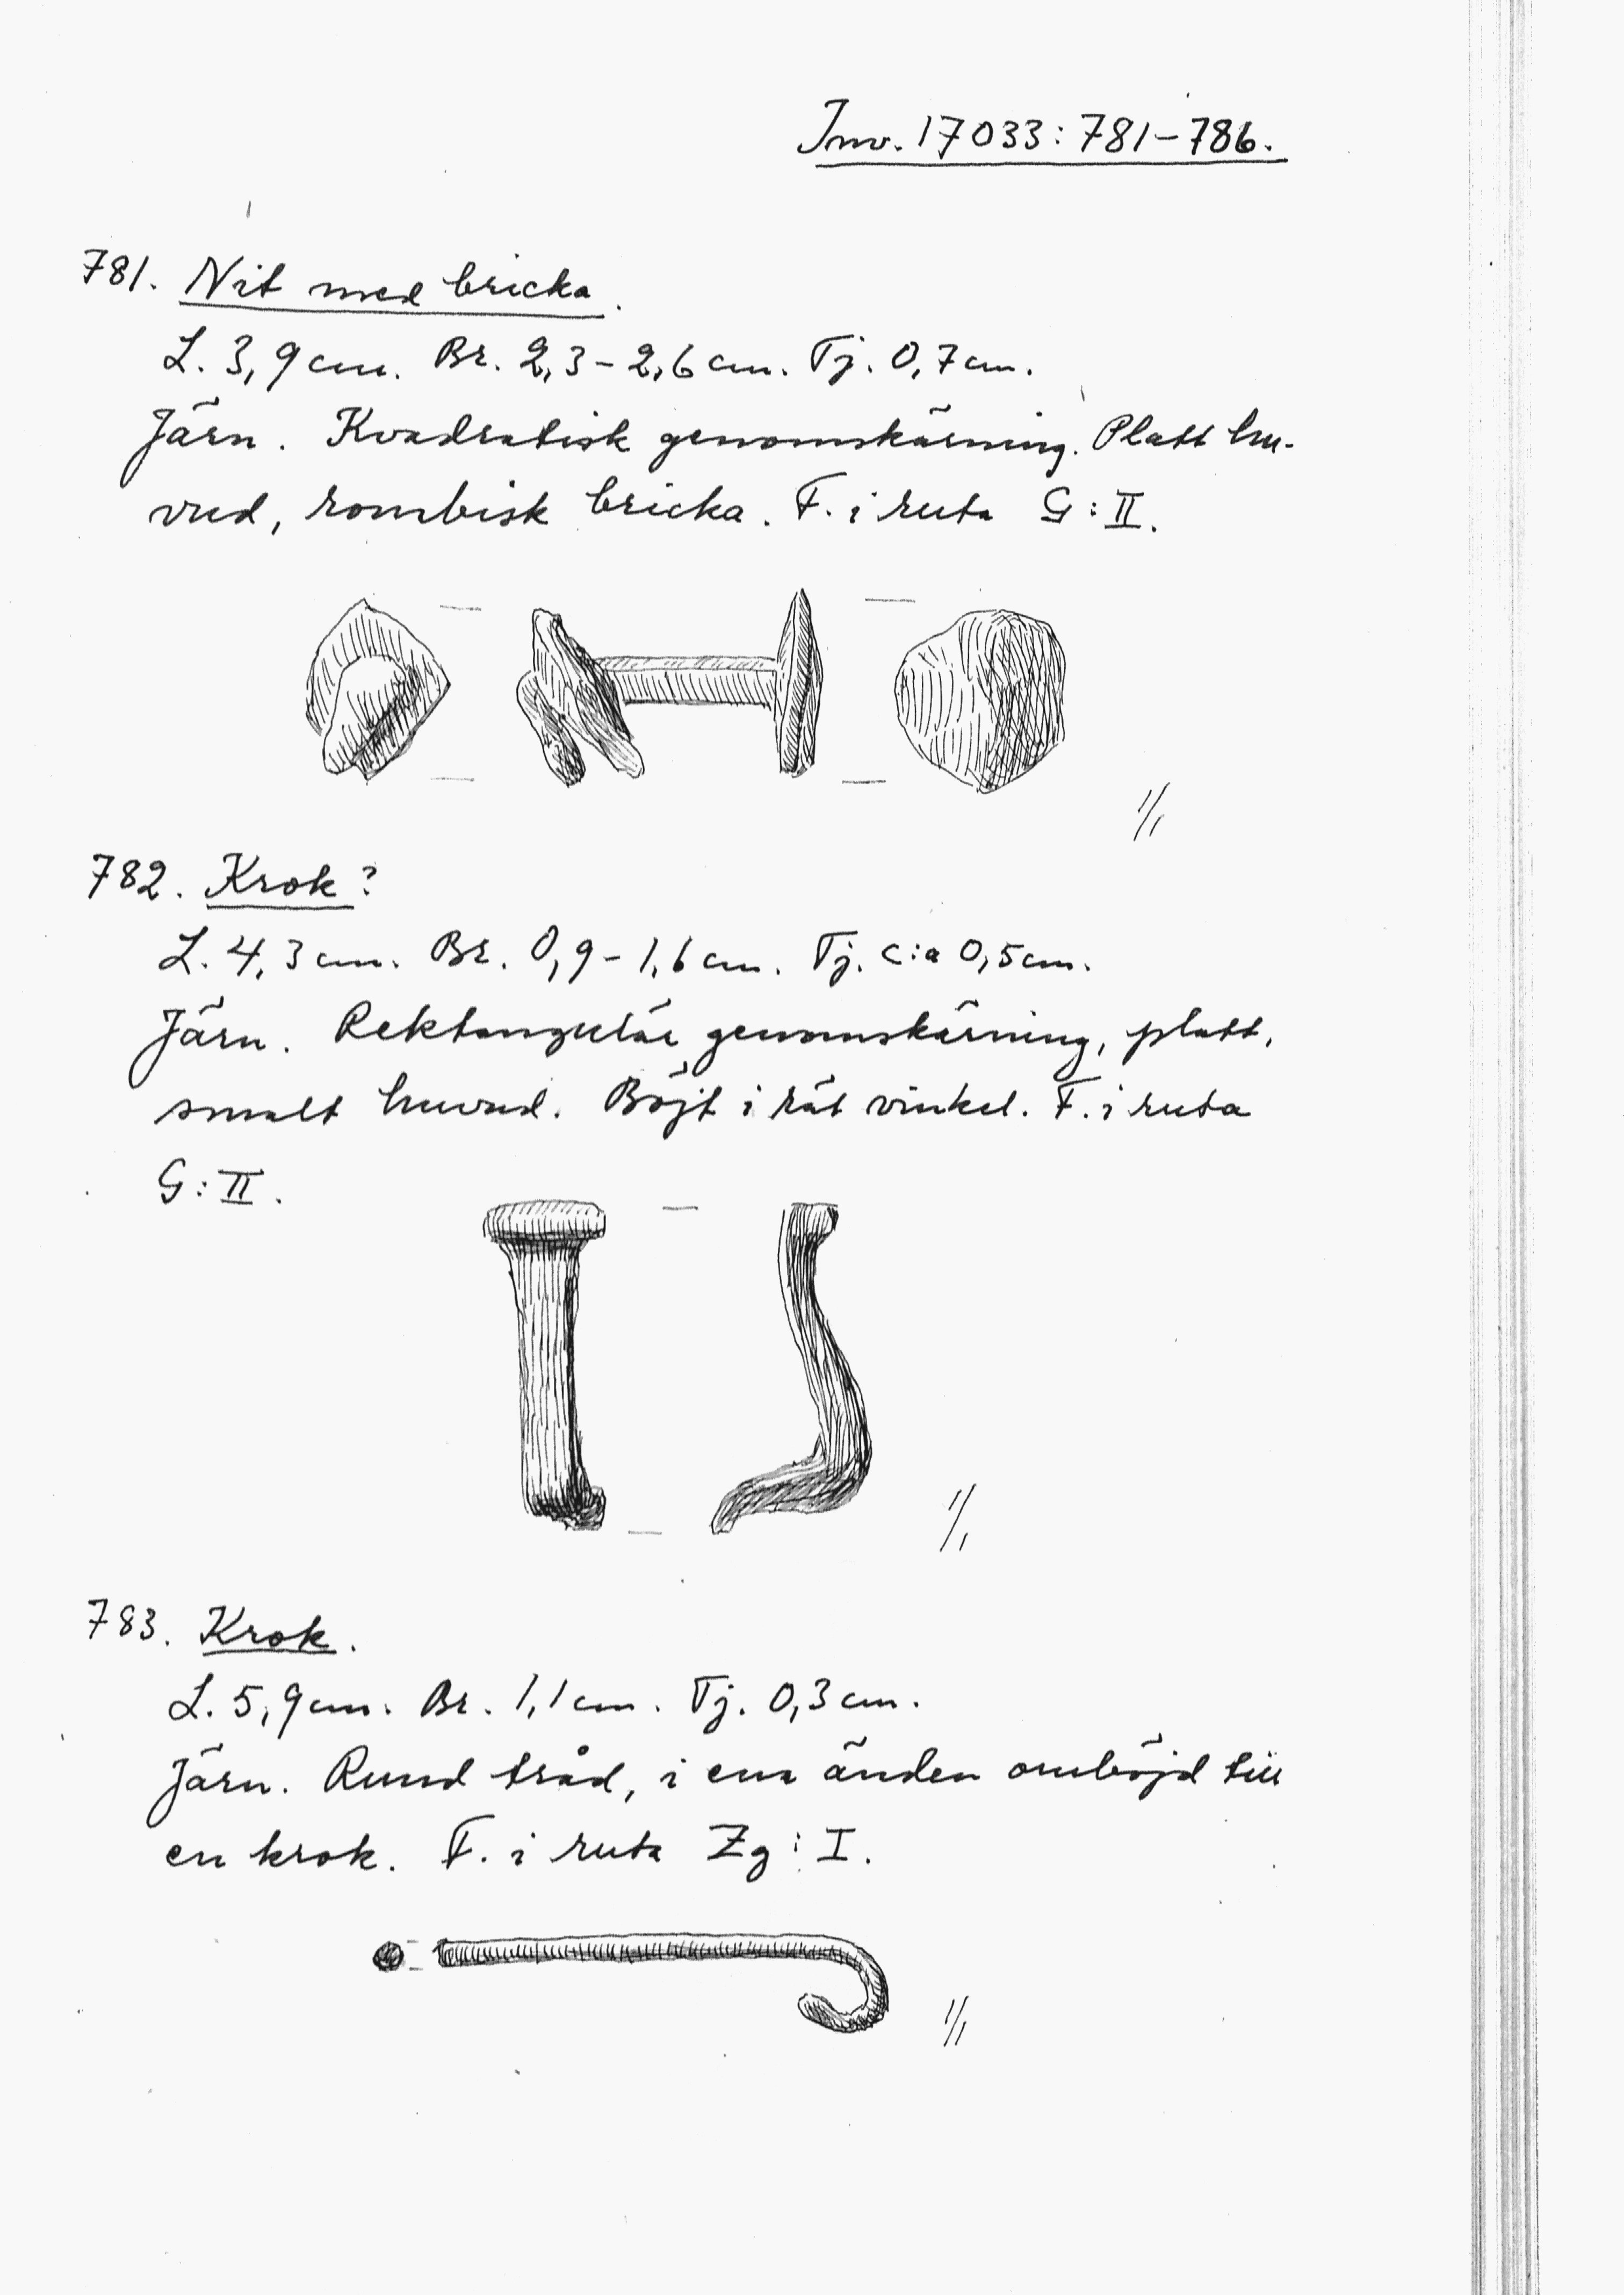 Inv. 17033: 781-786.
781. Nit med bricka.
L. 3,9 cm. Br. 2,3-2,6 cm. Tj. 0,7 cm.
Järn. Kvadratisk genomskärning. Platt hu-
vud, rombisk bricka. F. i ruta G:II.
1/1
782. Krok?
L. 4,3 cm. Br. 0,9-1,6 cm. Tj. c:a 0,5 cm.
Järn. Rektangulär genomskärning, platt,
smalt huvud. Böjt i rät vinkel. F. i ruta
G:II.
1/1
783. Krok.
L. 5,9 cm. Br. 1,1 cm. Tj. 0,3 cm.
Järn. Rund tråd, i ena änden omböjd till
en krok. F. i ruta Zg:I.
1/1